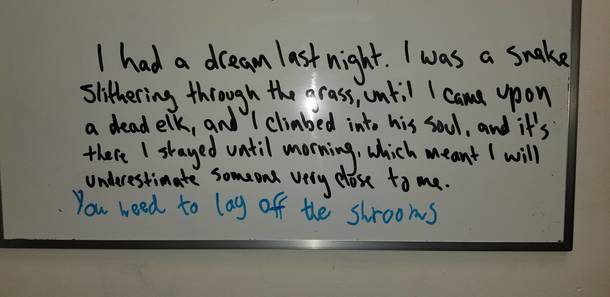 I had a dream last night. I was a snake
Slithering through the grass, until I came upon
a dead elk, and I climbed into his soul, and it's
there I stayed until morning, which meant I will
underestimate someone very close to me.
You need to lay off the shrooms